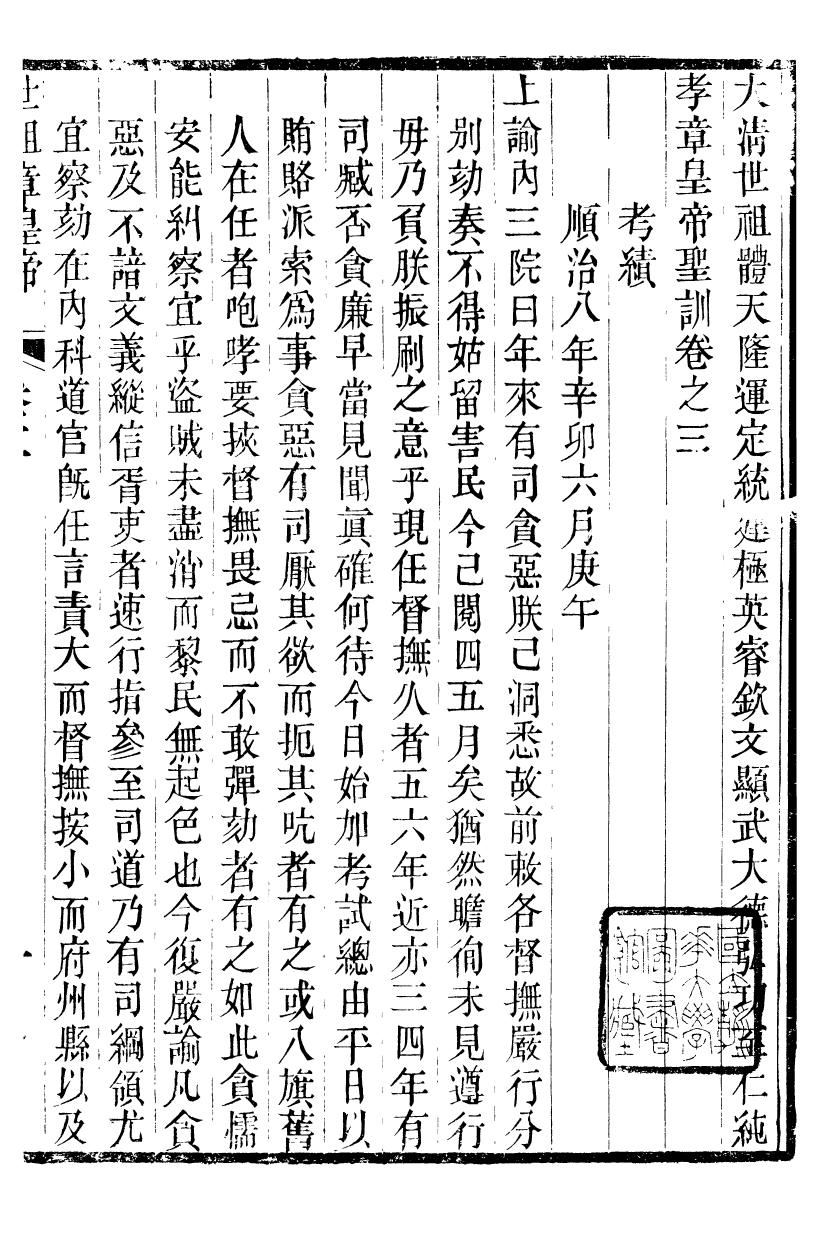 大清世祖體天隆運定統建極英睿欽文顯武大德弘功至仁純
孝章皇帝聖訓卷之三
考績
順治八年辛卯六月庚午
上諭內三院曰年來有司貪惡朕已洞悉故前敕各督撫嚴行分
別劾奏不得姑留害民今已閱四五月矣猶然瞻徇未見遵行
毋乃負朕振刷之意乎現任督撫久者五六年近亦三四年有
司臧否貪廉早當見聞眞確何待今日始加考試總由平日以
賄賂派索爲事貪惡有司厭其欲而扼其吭者有之或八旗舊
人在任者咆哮要挾督撫畏忌而不敢彈劾者有之如此貪懦
安能糾察宜乎盜賊未盡消而黎民無起色也今復嚴諭凡貪
惡及不諳文義縱信胥吏者速行指參至司道乃有司綱領尤
宜察劾在內科道官旣任言責大而督撫按小而府州縣以及
世祖章皇帝
國立清華大學圖書館藏